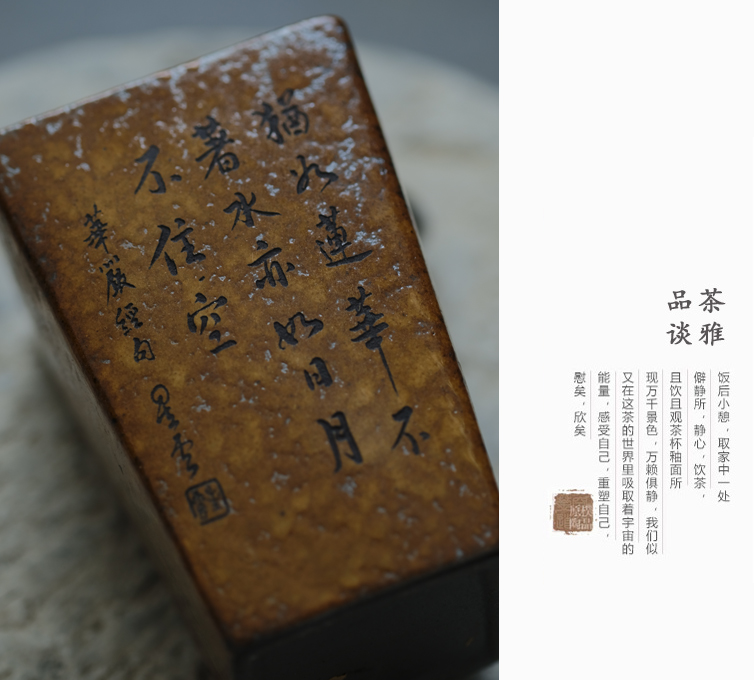 猶如蓮華不
著水亦如日月
不住空
華嚴經句 星雲
茶雅
品谈
饭后小憩，取家中一处
僻静所，静心，饮茶，
且饮且观茶杯釉面所
现万千景色，万赖俱静，我们似
又在这茶的世界里吸取着宇宙的
能量，感受自己，重塑自己，
慰矣，欣矣